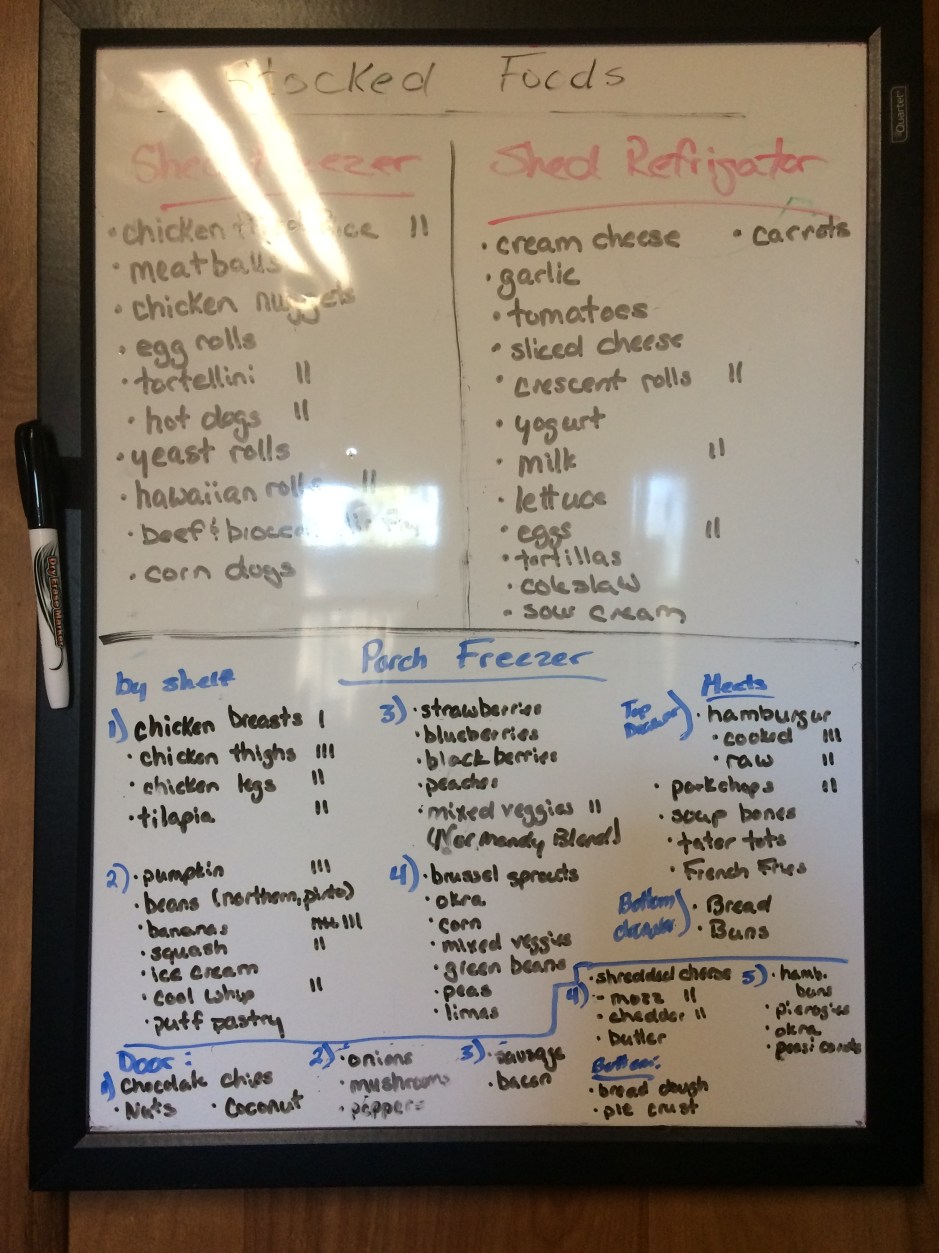 Stocked Foods
Quartet
Shed Freezer
• chicken fried rice II
• meatballs
• chicken nuggets
• egg rolls
• tortellini II
• hot dogs II
• yeast rolls
• hawaiian rolls II
• beef & broccoli stir fry
• corn dogs
Shed Refrigator
• cream cheese • carrots
• garlic
• tomatoes
• sliced cheese
• crescent rolls II
• yogurt
• milk II
• lettuce
• eggs II
• tortillas
• coleslaw
• sour cream
Dry Erase Marker
Porch Freezer
by shelf
1) chicken breasts I
• chicken thighs III
• chicken legs II
• tilapia II
2) • pumpkin III
• beans (northern, pinto)
• bananas
• squash II
• ice cream
• cool whip II
• puff pastry
3) • strawberries
• blueberries
• blackberries
• peaches
• mixed veggies II
(Normandy Blend)
4) • brussel sprouts
• okra
• corn
• mixed veggies
• green beans
• peas
• limas
Meats
Top
Drawer) • hamburgur
• cooked III
• raw II
• porkchops II
• soup bones
• tater tots
• French Fries
Bottom
drawer) • Bread
• Buns
Door:
1) Chocolate chips
• Nuts • Coconut
2) • onions
• mushrooms
• peppers
3) • sausage
• bacon
4) • shredded cheese
- mozz II
- chedder II
• butter
Bottom:
• bread dough
• pie crust
5) • hamb.
buns
• pierogies
• okra